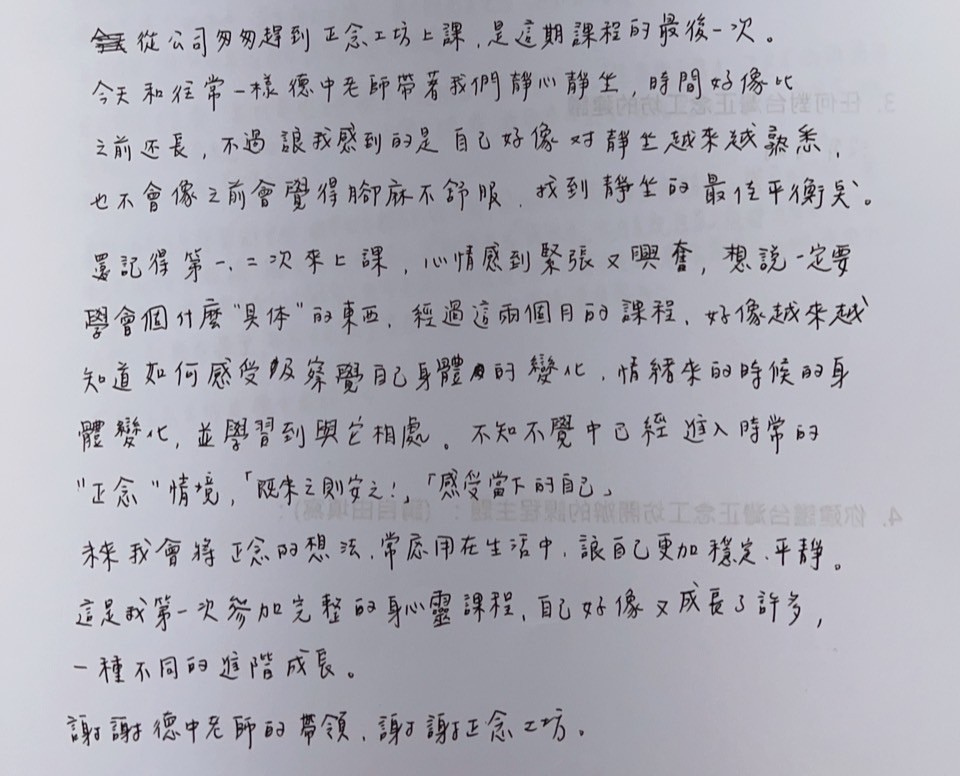 從公司匆匆趕到正念工坊上課，是這期課程的最後一次。
今天和往常一樣德中老師帶著我們靜心靜坐，時間好像比
之前还長，不過讓我感到的是自己好像对靜坐越來越熟悉、
也不會像之前會覺得腳麻不舒服、找到靜坐的最佳平衡点。
還記得第一、二次來上課，心情感到緊張又興奮，想說一定要
學會個什麼"具体"的東西、經過這兩個月的課程、好像越來越
知道如何感受及察覺自己身體的變化、情緒來的時候的身
體變化，並學習到與它相處。不知不覺中已經進入時常的
"正念"情境，「既來之則安之！」「感受當下的自己」
未來我會將正念的想法、常応用在生活中、讓自己更加穩定、平靜。
這是我第一次參加完整的身心靈課程、自己好像又成長了許多，
一種不同的進階成長。
謝謝德中老師的帶領、謝謝正念工坊。
3. 任何對台灣正念工坊的建議
4. 你建議台灣正念工坊開辦的課程主題：(請自由填寫)：